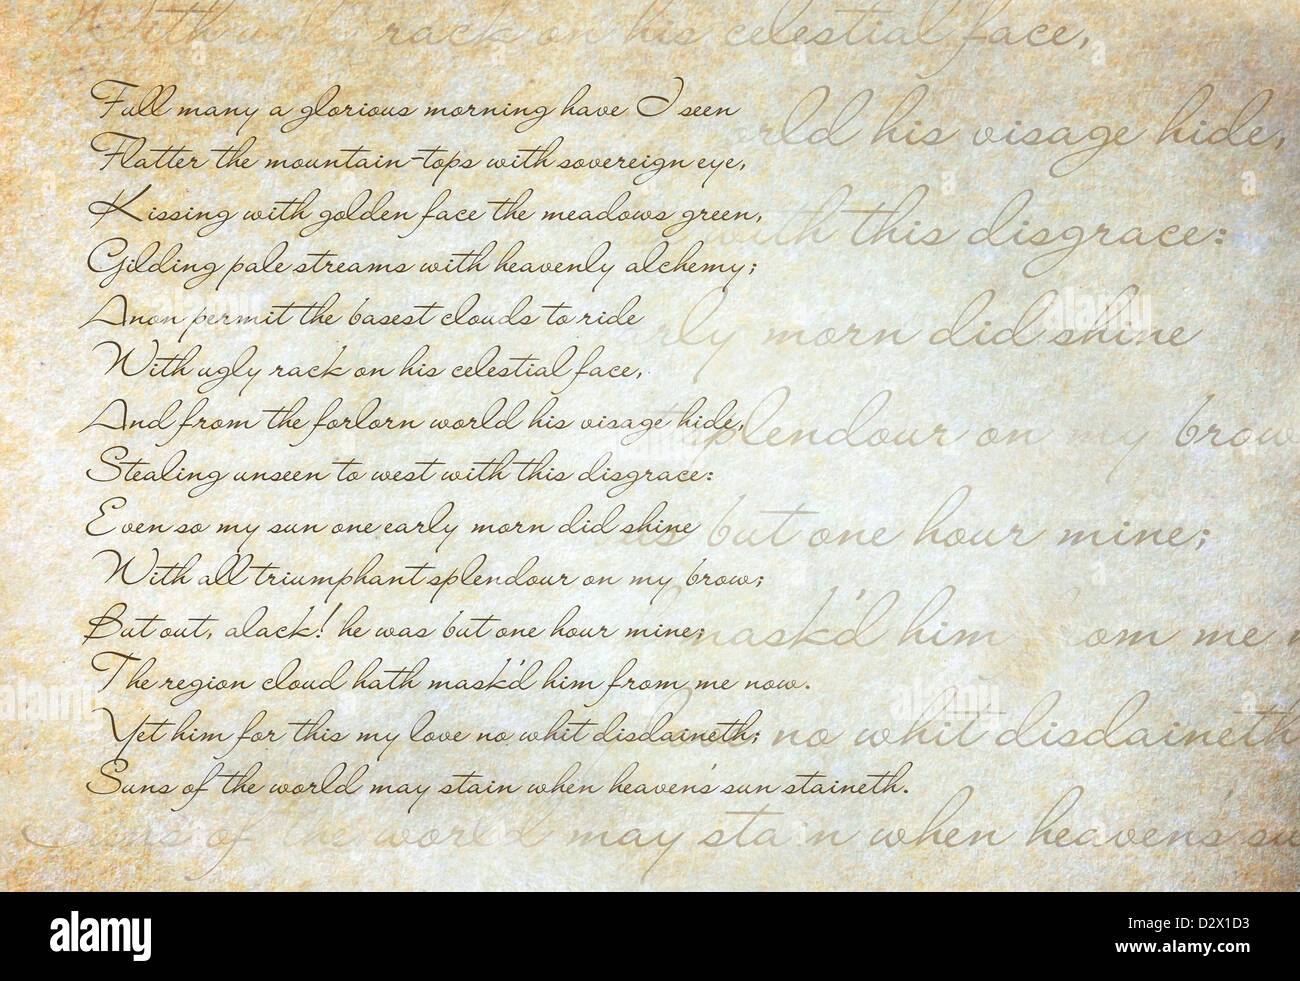 With ugly rack on his celestial face,
Full many a glorious morning have I seen
rld his visage hide,
Flatter the mountain-tops with sovereign eye,
Kissing with golden face the meadows green,
with this disgrace:
Gilding pale streams with heavenly alchemy;
Anon permit the basest clouds to ride
rly morn did shine
With ugly rack on his celestial face,
And from the forlorn world his visage hide,
splendour on my brow
Stealing unseen to west with this disgrace:
Even so my sun one early morn did shine
but one hour mine;
With all triumphant splendour on my brow;
But out, alack! he was but one hour mine;
mask'd him from me n
The region cloud hath mask'd him from me now.
Yet him for this my love no whit disdaineth;
no whit disdaineth
Suns of the world may stain when heaven's sun staineth.
Suns of the world may stain when heaven's su
alamy
Image ID: D2X1D3
www.alamy.com